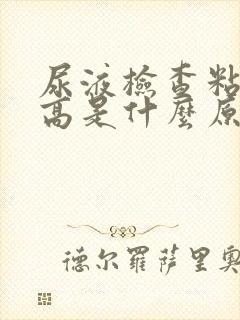 尿液檢查粘
高是什麼原
德尔羅萨里奥